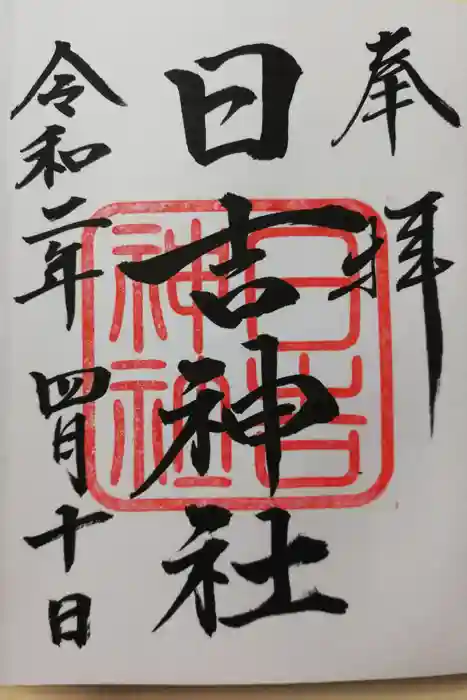 奉拝
日吉神社
令和二年四月十日
日吉神社